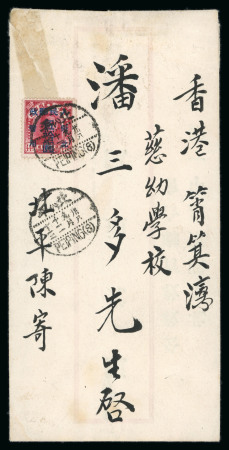 香港筲箕灣
慈幼學校
潘三多先生啓
北平陳寄
PEIPING(8)
PEIPING(8)